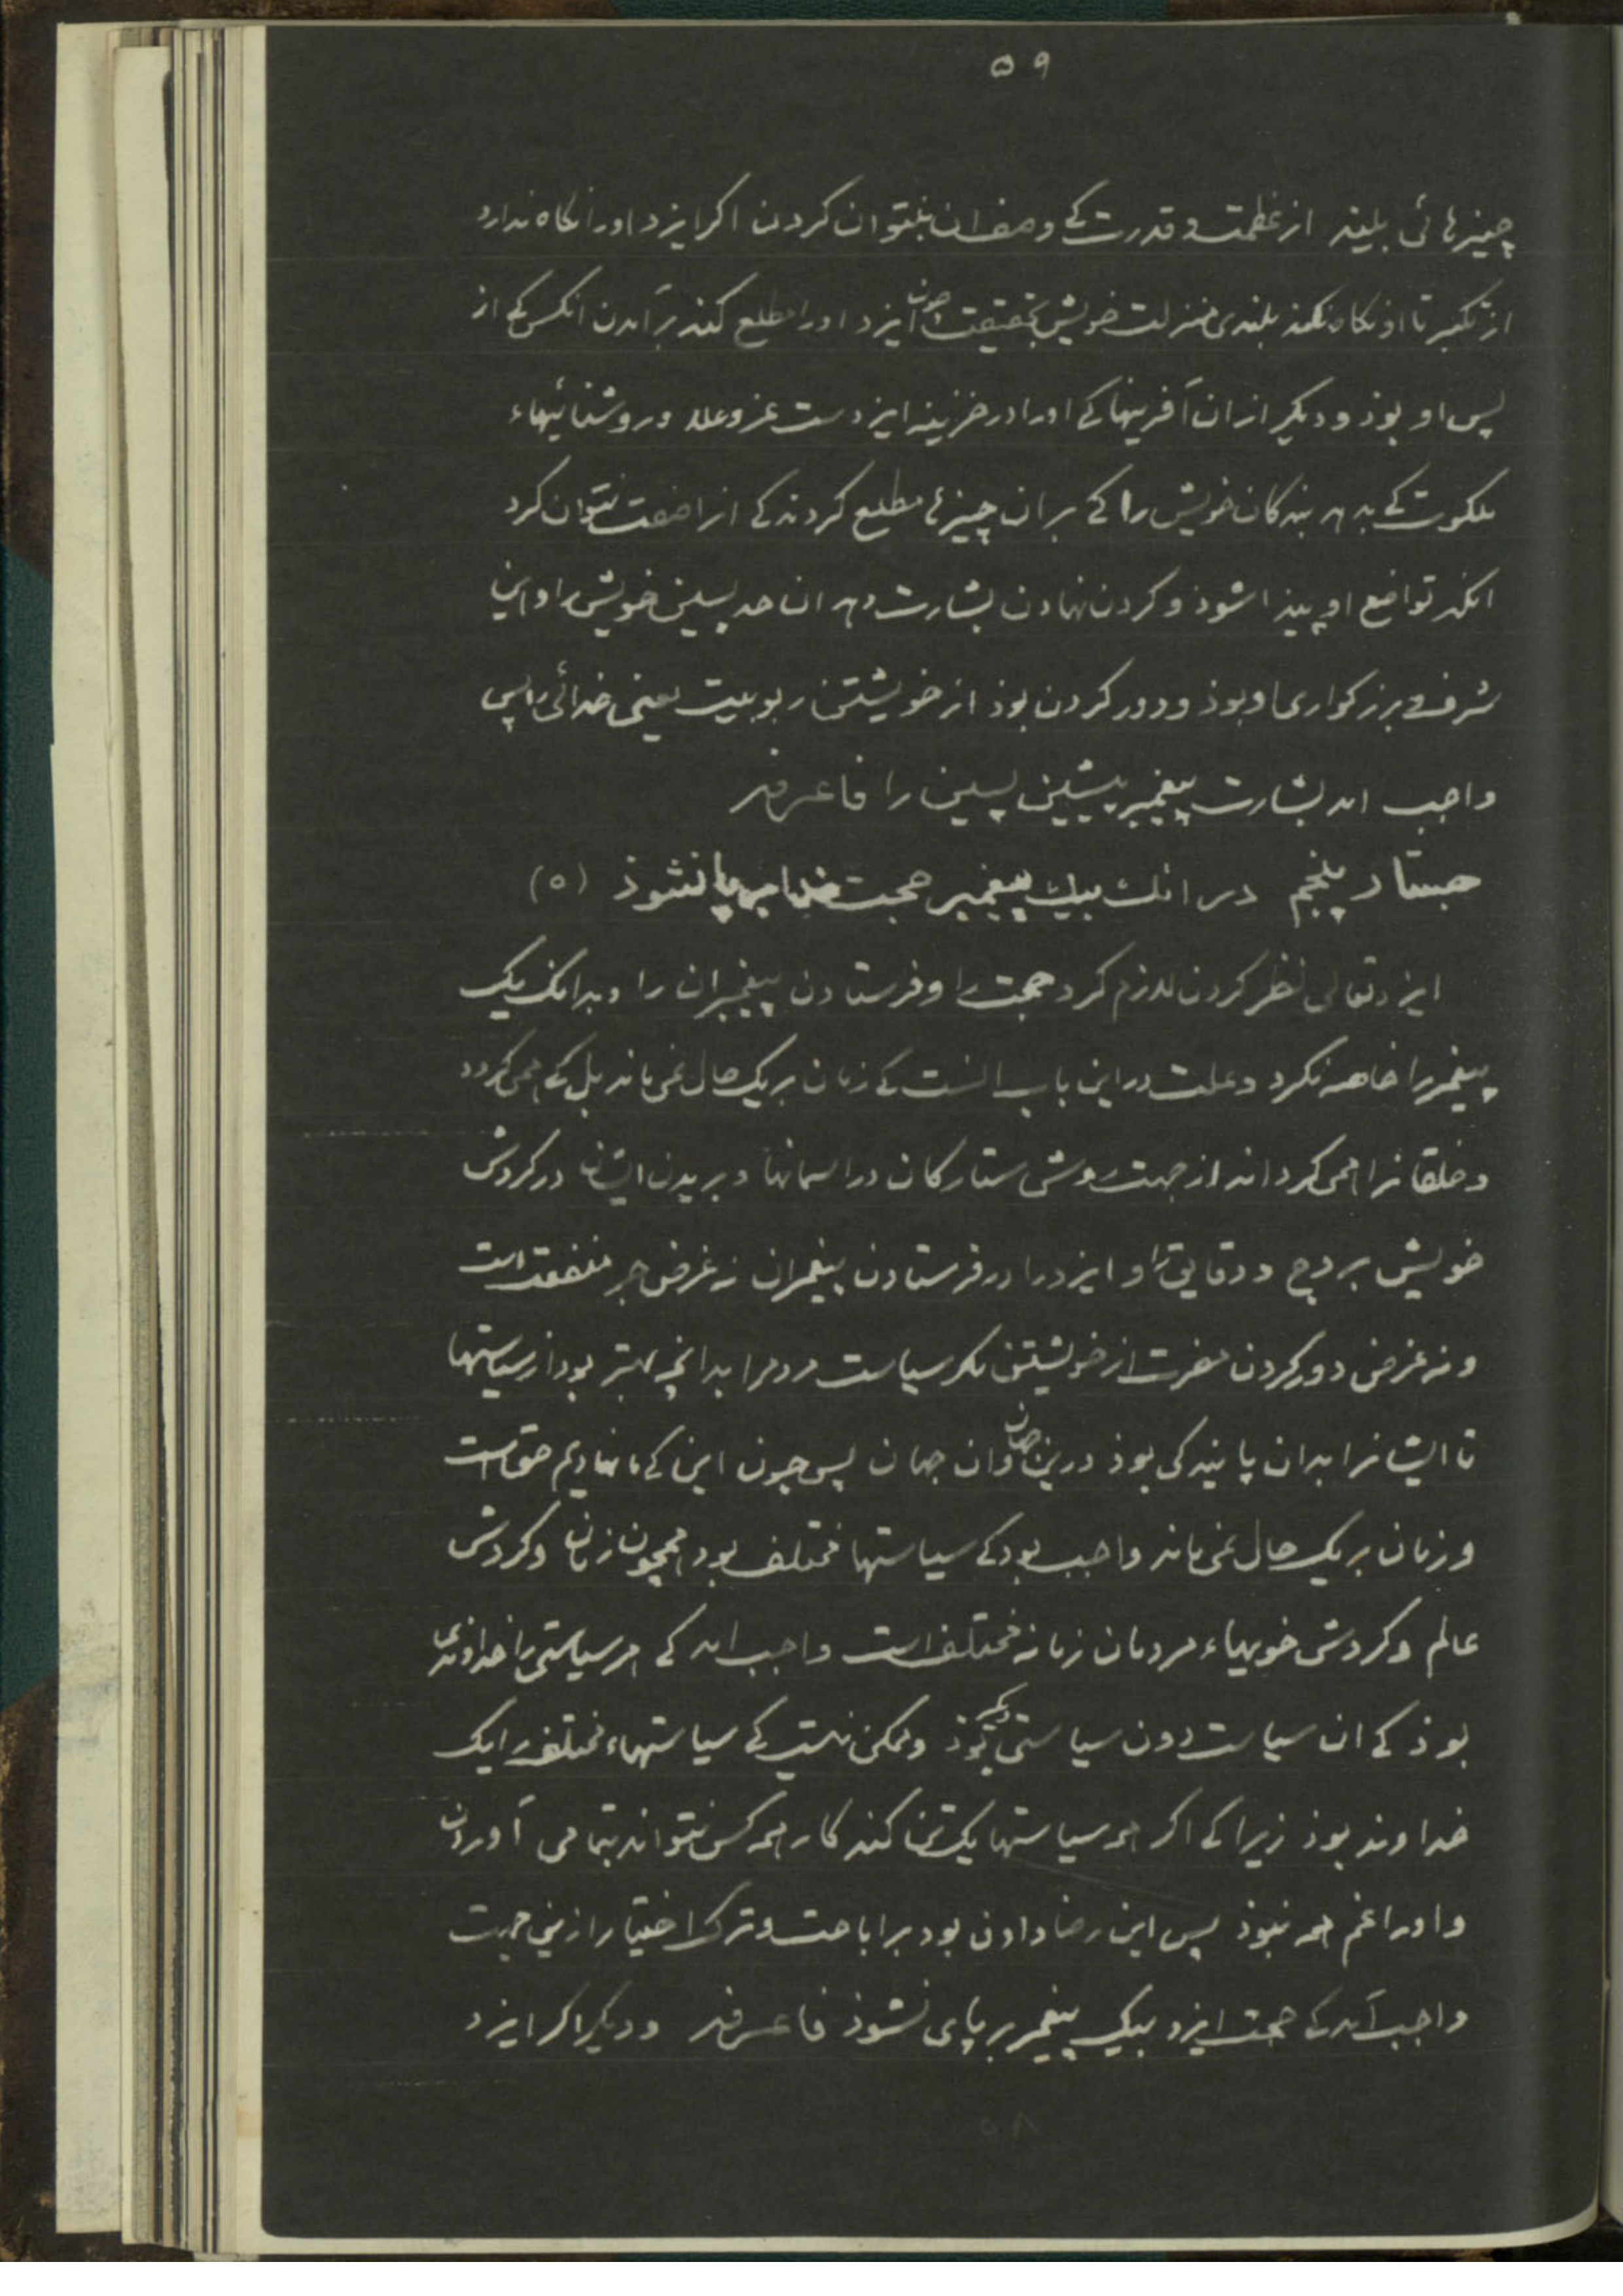 ۵۹
چیزهائی بلیند از عظمت و قدرت کے وصف ان نتوان کردن اکر ایزد اورا نکاه ندارد
از تکبر تا او نکاه نکند بلندی منزلت خویش بحقیقت چون ایزد اورا مطلع کند بر آمدن انکس کے از
پس او بوذ و دیکر از ان آفرینها کے اورا در خزینه ایزدست عز و علا و روشنائیهاء
ملکوت کے بدهد بندکان خویش را کے بران چیزها مطلع کردند کے انرا صفت نتوان کرد
انکه تواضع او پیذا شوذ و کردن نهادن بشارت دهد ان حد پسین خویش را و این
شرف و بزرکواری او بوذ و دور کردن بوذ از خویشتن ربوبیت یعنی خدائی را پس
واجب امد بشارت پیغمبر پیشین پسین را فاعرفه
جستار پنجم در انک بیک پیغمبر حجت خدا برپا نشوذ (۵)
ایزد تعالی نظر کردن لازم کرد حجت را و فرستادن پیغمبران را و بدانک یک
پیغمبر را خاصه نکرد و علت در این باب انست کے زمان بر یک حال نمی ماند بل کے همی کردد
و خلقانرا همی کرداند از جهت روش ستارکان در اسمانها و بریدن ایشان در کردش
خویش بر درج و دقایق را و ایزد را در فرستادن پیغمبران نه غرض جر منفعت است
و نه غرض دور کردن مضرت از خویشتن مکر سیاست مردمرا بدانچه بهتر بود از سیاستها
تا ایشانرا بدان پایندکی بوذ درین جهان و ان جهان پس چون این کے ما نهادیم حق است
و زمان بر یک حال نمی ماند واجب بود کے سیاستها مختلف بود همچون زمان و کردش
عالم و کردش خویهاء مردمان زمانه مختلف است واجب امد کے هر سیاستی را خداوندی
بوذ کے ان سیاست دون سیاستی دیکر بوذ و ممکن نیست کے سیاستهاء مختلف را یک
خداوند بوذ زیرا کے اکر همه سیاستها یک تن کند کار همه کس نتواند بتمامی آوردن
و اورا غم همه نبوذ پس این رضا دادن بود بر اباحت و ترک اختیار ازین جهت
واجب آمد کے حجت ایزد بیک پیغمبر بر پای نشوذ فاعرفه و دیکر اکر ایزد